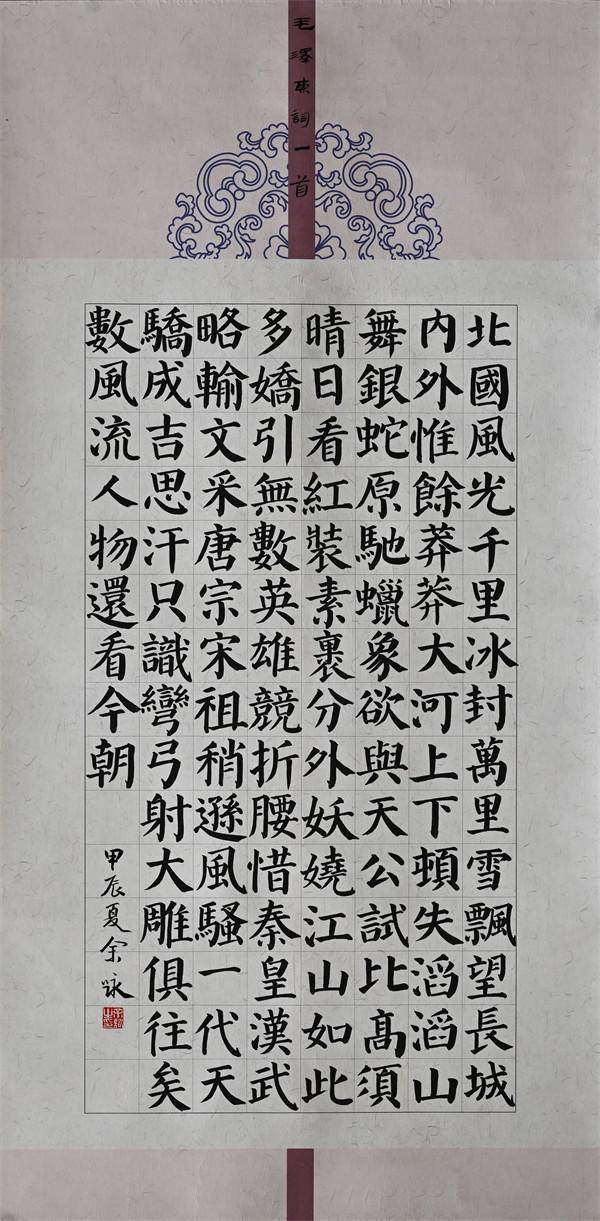 毛澤東詞一首
北國風光千里冰封萬里雪飄望長城
内外惟餘莽莽大河上下頓失滔滔山
舞銀蛇原馳蠟象欲與天公試比髙須
晴日看紅裝素裹分外妖嬈江山如此
多嬌引無數英雄競折腰惜秦皇漢武
略輸文采唐宗宋祖稍遜風騷一代天
驕成吉思汗只識彎弓射大雕俱往矣
數風流人物還看今朝
甲辰夏余咏